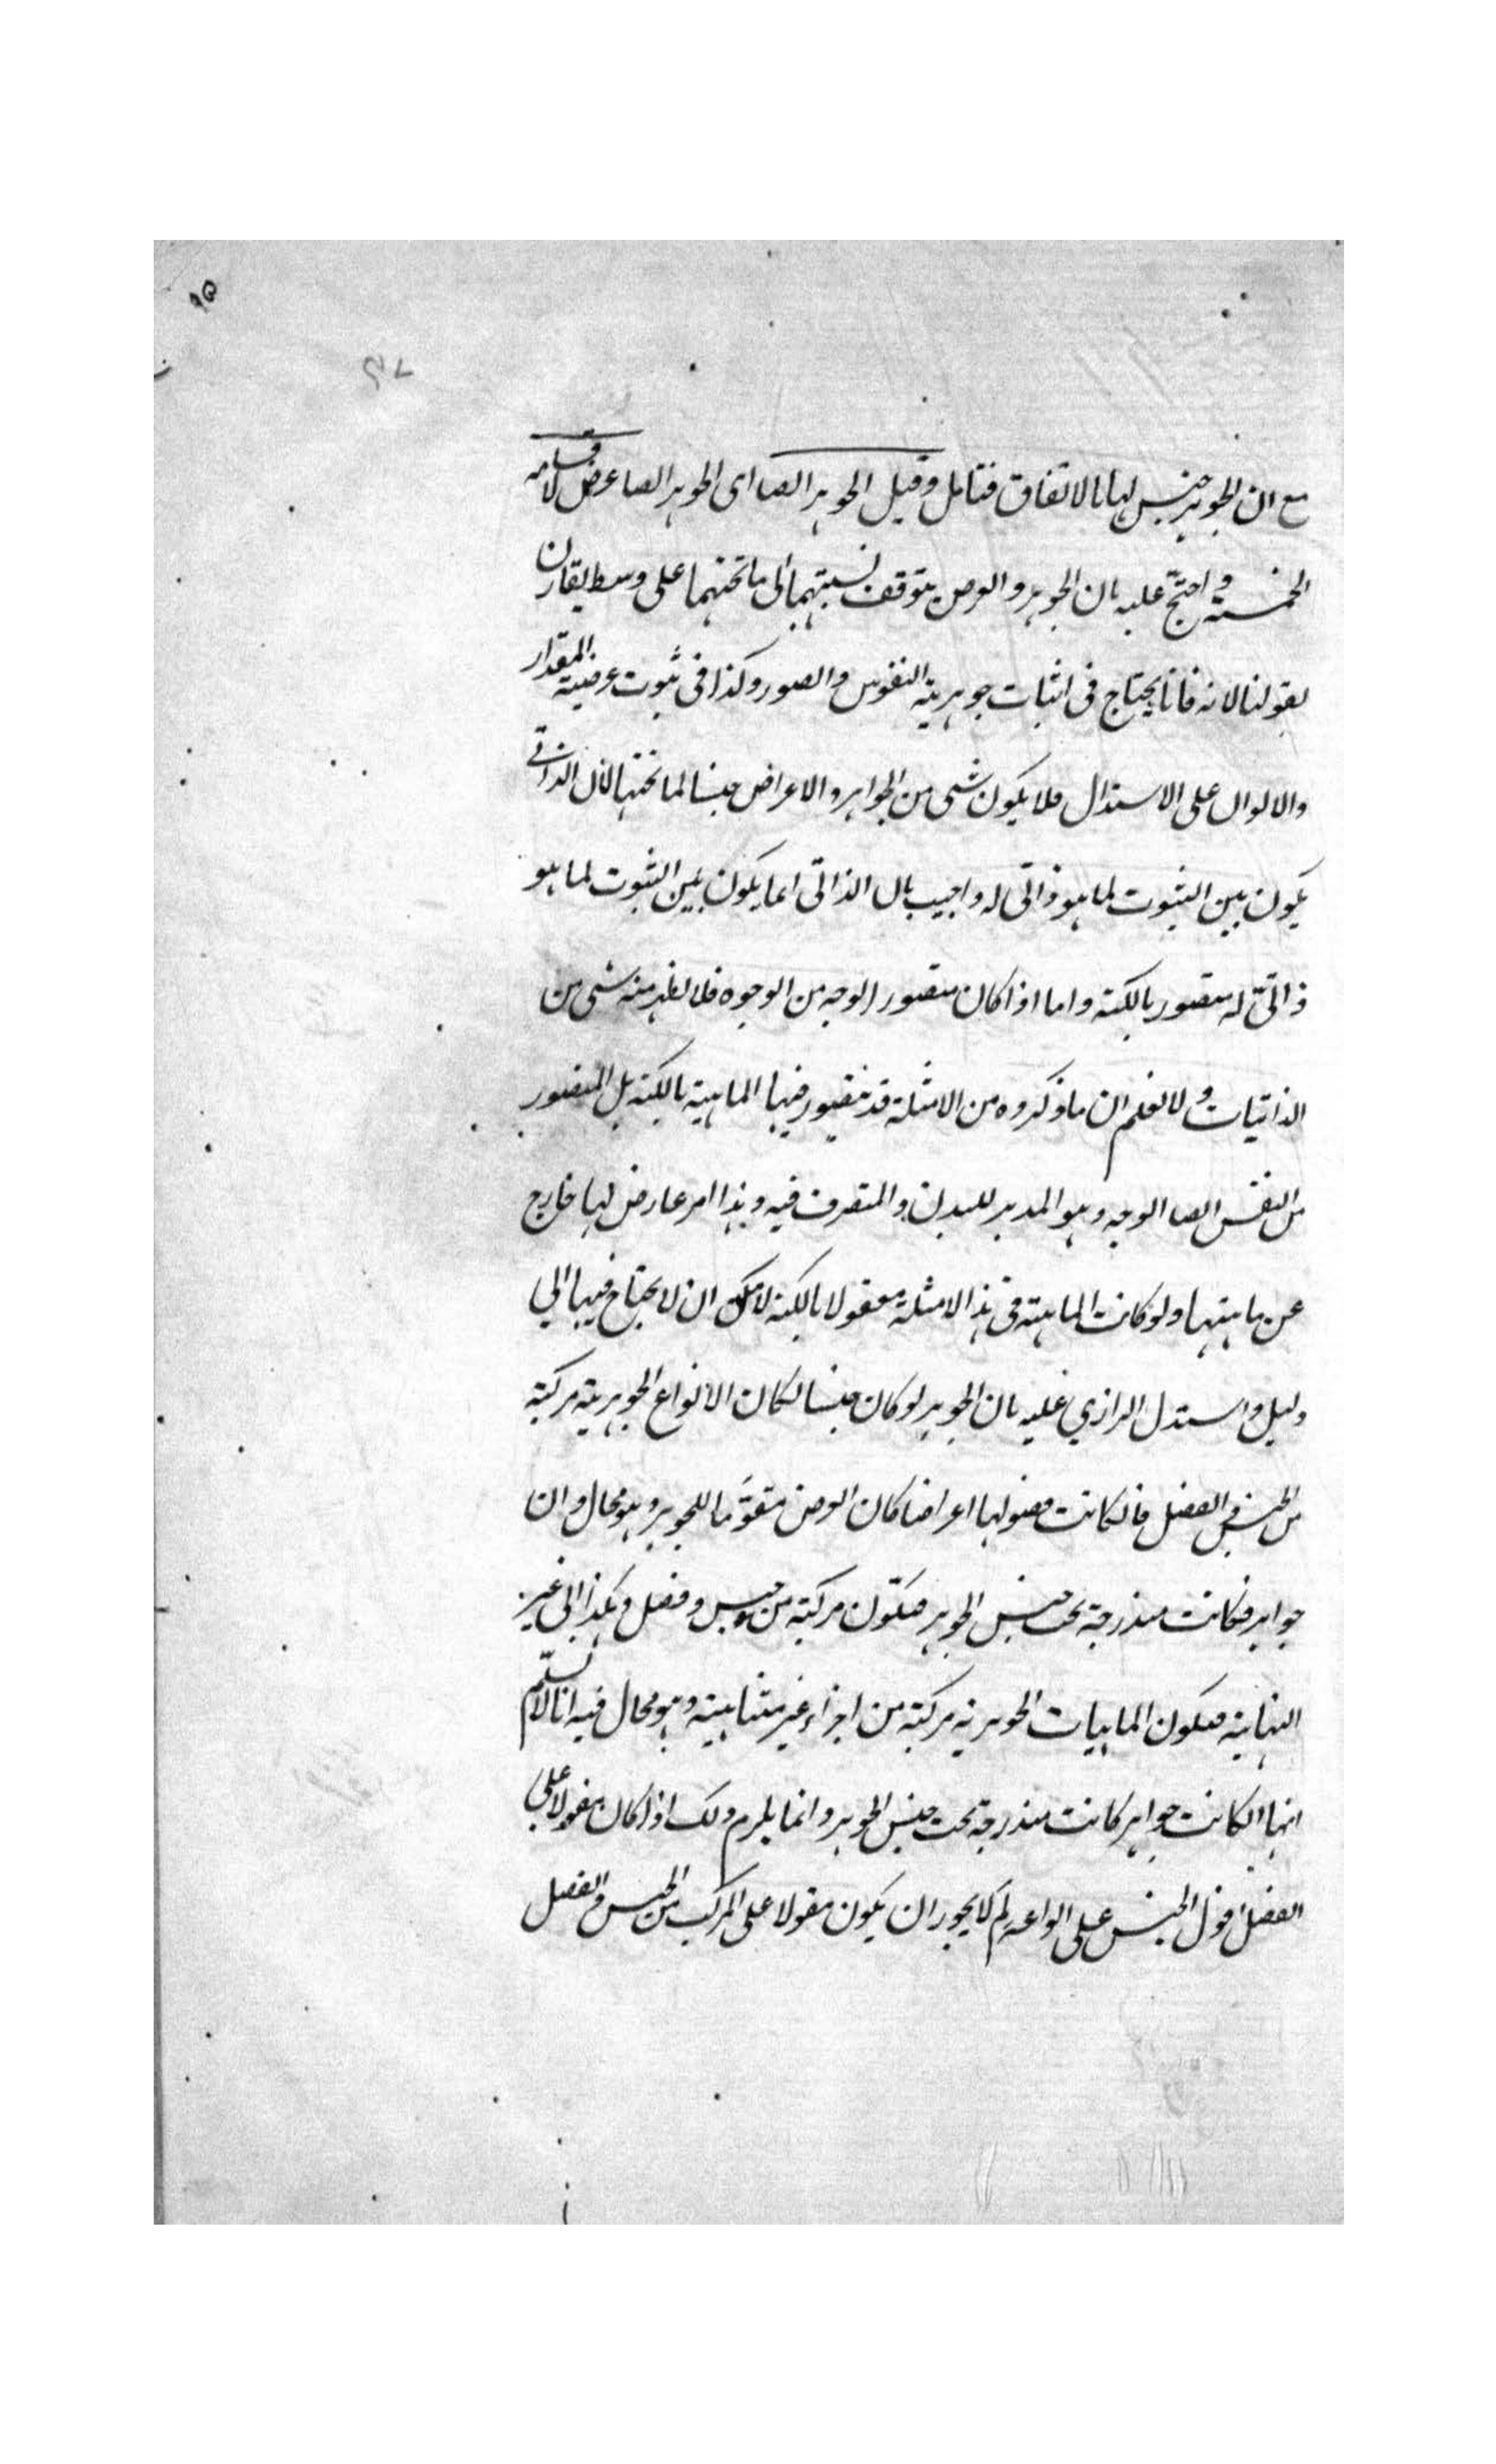 ٩٥
٤٧
مع ان الجوهر جنس لها بالاتفاق فتامل وقيل الجوهر ايضا اى الجوهر ايضا عرض لاقسامه
الخمسة واحتج عليه بان الجوهر والعرض يتوقف نسبتهما الى ما تحتهما على وسط يقارن
بقولنا لانه فانا يحتاج فى اثبات جوهرية النفوس والصور وكذا فى ثبوت عرضية المقدار
والالوان على الاستدلال فلا يكون شىء من الجواهر والاعراض جنسا لما تحتها لان الذاتى
يكون بين الثبوت لما هو ذاتى له واجيب بان الذاتى انما يكون بين الثبوت لما هو
ذاتى له متصور بالكنه واما اذا كان متصورا لوجه من الوجوه فلا يلزم منه شىء من
الذاتيات ولا نعلم ان ما ذكروه من الامثلة قد نتصور فيها الماهية بالكنه بل المتصور
من النفس ايضا الوجه وهو المدبر للبدن والمتصرف فيه وهذا امر عارض لها خارج
عن ماهيتها ولو كانت الماهية فى هذه الامثلة معقولا بالكنه لامكن ان لا يحتاج فيها الى
دليل واستدل الرازي عليه بان الجوهر لو كان جنسا لكان الانواع الجوهرية مركبة
من الجنس والفصل فان كانت فصولها اعراضا كان العرض مقوما للجوهر وهو محال وان
جواهر فكانت مندرجة تحت جنس الجوهر فتكون مركبة من جنس وفصل وهكذا الى غير
النهاية فيكون الماهيات الجوهرية مركبة من اجزاء غير متناهية وهو محال فيه انا لا نسلم
انها ان كانت جواهر كانت مندرجة تحت جنس الجوهر وانما يلزم ذلك اذا كان مقولا على
الفصل قول الجنس على انواعه لم لا يجوز ان يكون مقولا على المركب من الجنس والفصل